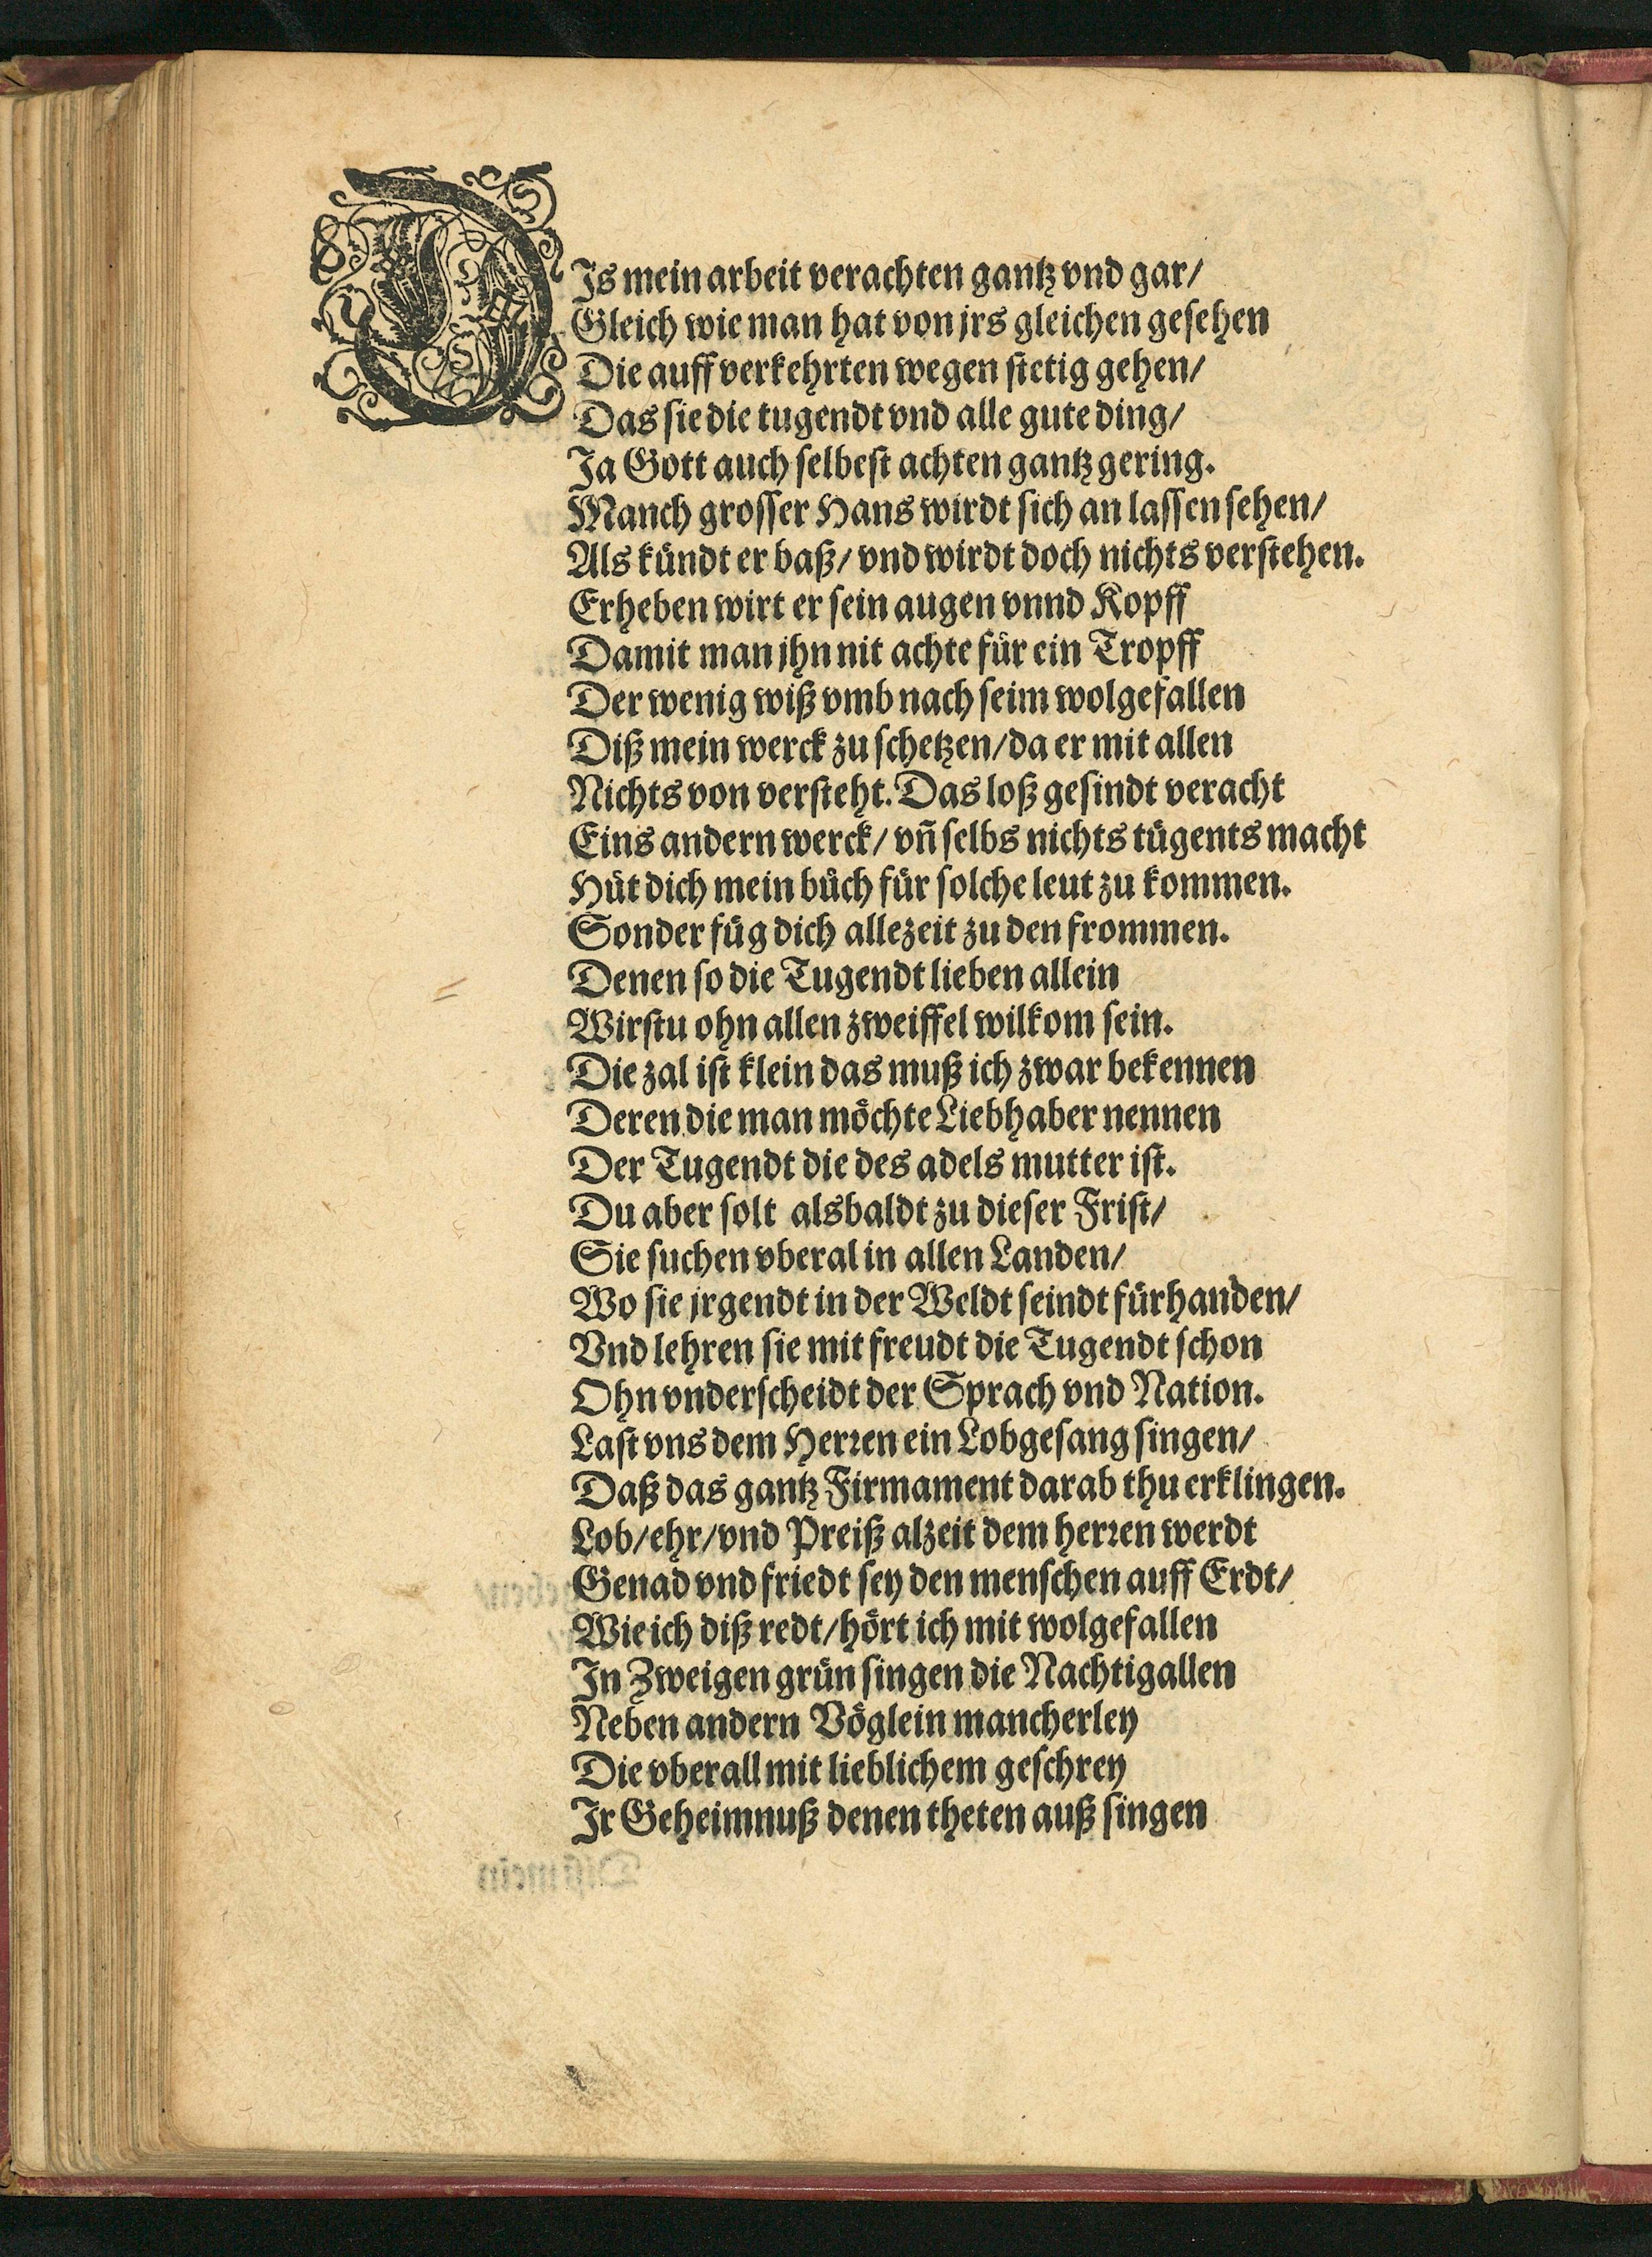 DIs mein arbeit verachten gantz vnd gar/
Gleich wie man hat von jrs gleichen gesehen
Die auff verkehrten wegen stetig gehen/
Das sie die tugendt vnd alle gute ding/
Ja Gott auch selbest achten gantz gering.
Manch grosser Hans wirdt sich an lassen sehen/
Als kündt er baß/ vnd wirdt doch nichts verstehen.
Erheben wirt er sein augen vnnd Kopff
Damit man jhn nit achte für ein Tropff
Der wenig wiß vmb nach seim wolgefallen
Diß mein werck zu schetzen/ da er mit allen
Nichts von versteht. Das loß gesindt veracht
Eins andern werck/ vñ selbs nichts tügents macht
Hüt dich mein bůch für solche leut zu kommen.
Sonder füg dich allezeit zu den frommen.
Denen so die Tugendt lieben allein
Wirstu ohn allen zweiffel wilkom sein.
Die zal ist klein das muß ich zwar bekennen
Deren die man möchte Liebhaber nennen
Der Tugendt die des adels mutter ist.
Du aber solt alsbaldt zu dieser Frist/
Sie suchen vberal in allen Landen/
Wo sie jrgendt in der Weldt seindt fürhanden/
Vnd lehren sie mit freudt die Tugendt schon
Ohn vnderscheidt der Sprach vnd Nation.
Last vns dem Herren ein Lobgesang singen/
Daß das gantz Firmament darab thu erklingen.
Lob/ ehr/ vnd Preiß alzeit dem herren werdt
Genad vnd friedt sey den menschen auff Erdt/
Wie ich diß redt/ hört ich mit wolgefallen
In Zweigen grün singen die Nachtigallen
Neben andern Vöglein mancherley
Die vberall mit lieblichem geschrey
Ir Geheimnuß denen theten auß singen